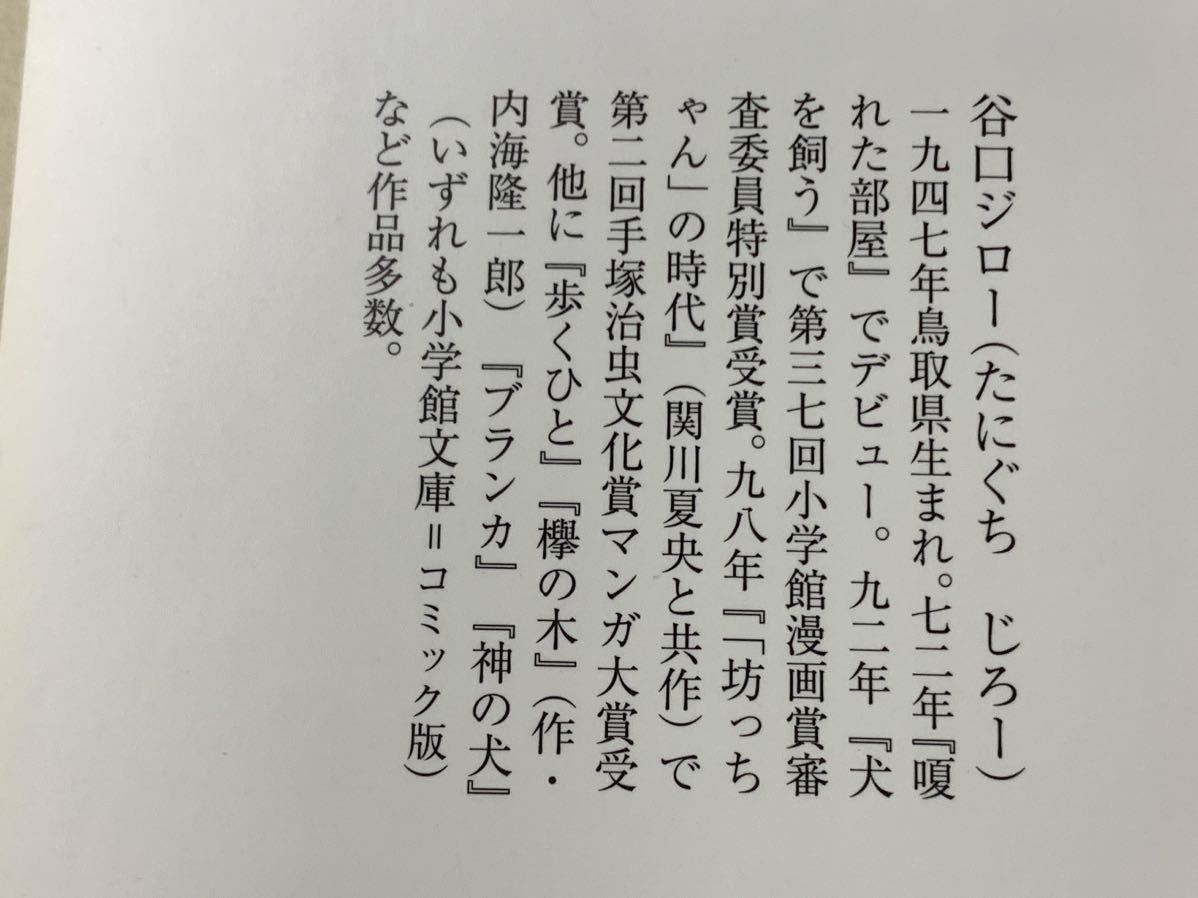 谷口ジロー(たにぐち　じろー)
一九四七年鳥取県生まれ。七二年『嗄
れた部屋』でデビュー。九二年『犬
を飼う』で第三七回小学館漫画賞審
査委員特別賞受賞。九八年『「坊っち
ゃん」の時代』(関川夏央と共作)で
第二回手塚治虫文化賞マンガ大賞受
賞。他に『歩くひと』『欅の木』(作・
内海隆一郎)『ブランカ』『神の犬』
(いずれも小学館文庫＝コミック版)
など作品多数。